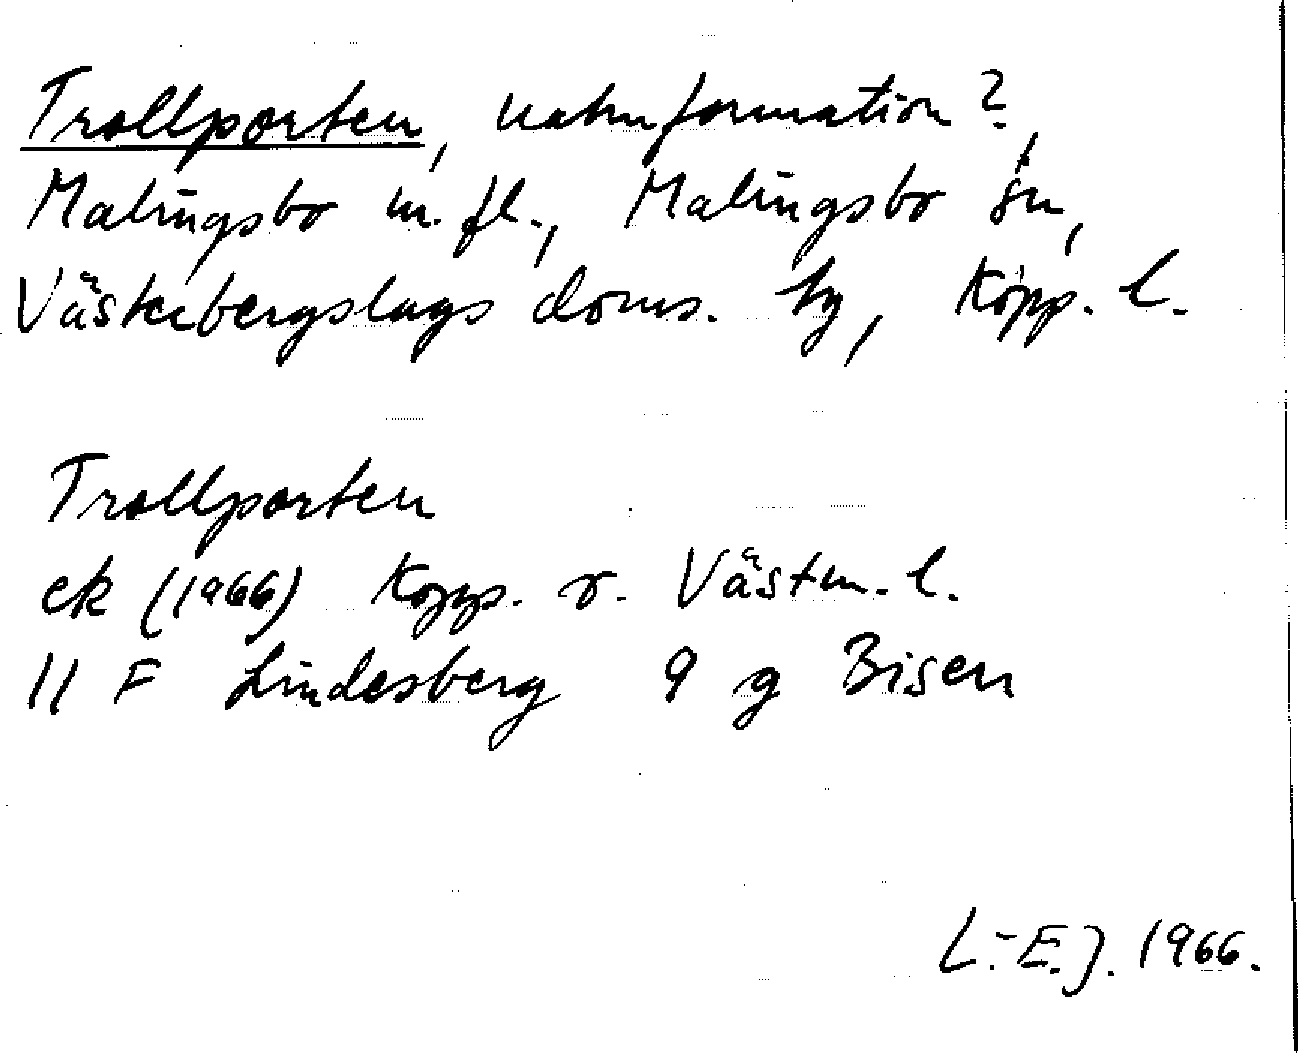 Trollporten, naturformation?,
Malingsbo m.fl., Malingsbo sn,
Västerbergslags doms. tg, Kopp. l.
Trollporten
ek (1966) Kopp. o. Västm. l.
11 F Lindesberg 9 g Bisen
L.-E.J. 1966.